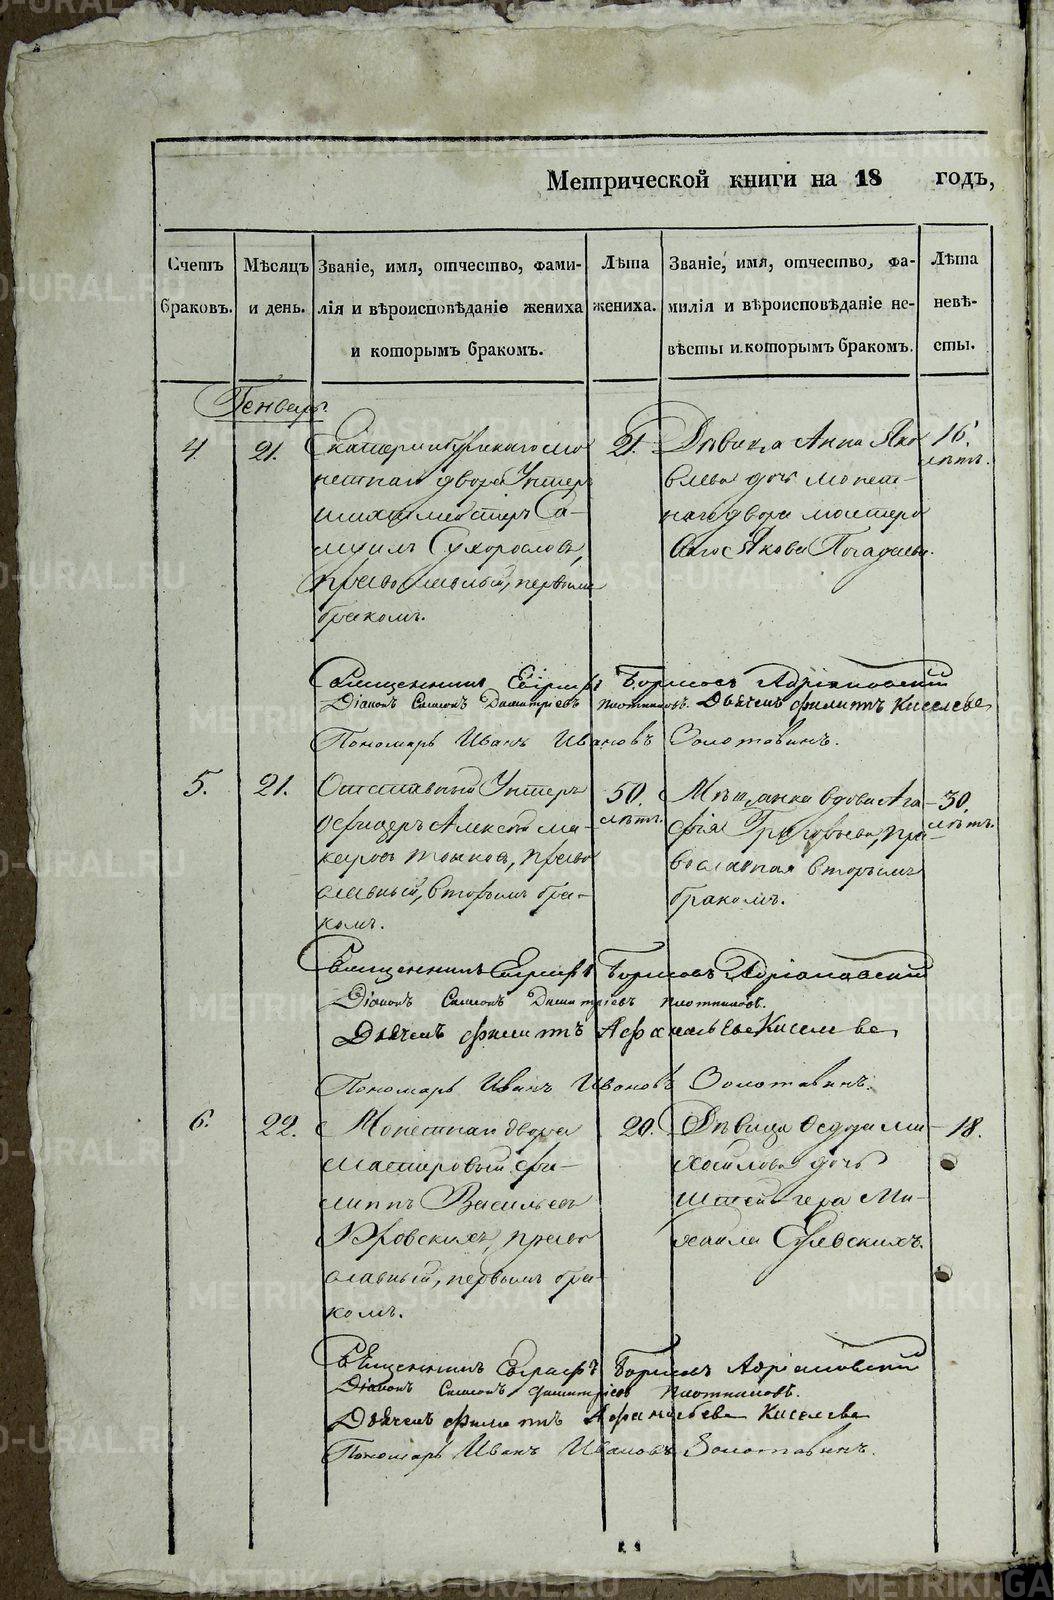 Метрической книги на 18 годъ,
Счетъ браковъ.
Мѣсяцъ и день.
Званіе, имя, отчество, фами-
лія и вѣроисповѣданіе жениха
и которымъ бракомъ.
Лѣта
жениха.
Званіе, имя, отчество, фа-
милія и вѣроисповѣданіе не-
вѣсты и которымъ бракомъ.
Лѣта
невѣ-
сты.
Генварь
4. 21.
Екатеринбургскаго мо
нетнаго двора Унтер
шихтмейстеръ Са-
муилъ Сухорословъ,
православный, первымъ
бракомъ.
21.
Дѣвица Анна Яко
влева дочь монет-
наго двора мастеро
ваго Якова Погадаева.
16.
лѣтъ.
Священникъ Евграфъ Борисовъ Адріановскій
Діаконъ Симеонъ Димитріевъ Плотниковъ. Дьячекъ Филиппъ Киселевъ
Пономарь Иванъ Ивановъ Золотавинъ.
5. 21.
Отставный Унтеръ
офицеръ Алексѣй Ма-
каровъ, право
славный, вторымъ бра-
комъ.
50.
лѣтъ.
Мѣщанка вдова Ага-
фія Григорьева, пра-
вославная вторымъ
бракомъ.
30.
лѣтъ.
Священникъ Евграфъ Борисовъ Адріановскій
Діаконъ Симеонъ Димитріевъ Плотниковъ.
Дьячекъ Филиппъ Афанасьевъ Киселевъ
Пономарь Иванъ Ивановъ Золотавинъ.
6. 22.
Монетнаго двора
мастеровый Фи-
липпъ Васильевъ
православный, первымъ бра-
комъ.
20.
Дѣвица Ѳедора Ми-
хайлова дочь
штейгера Ми-
хаила
18.
Священникъ Евграфъ Борисовъ Адріановскій
Діаконъ Симеонъ Димитріевъ Плотниковъ.
Дьячекъ Филиппъ Афанасьевъ Киселевъ
Пономарь Иванъ Ивановъ Золотавинъ.
METRIKI.GASO-URAL.RU